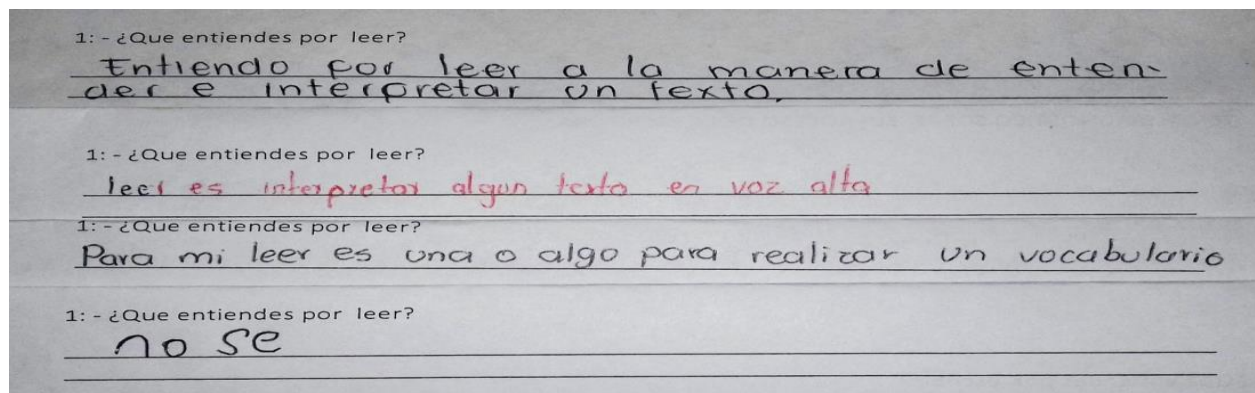 1: - ¿Que entiendes por leer?
Entiendo por leer a la manera de enten-
der e interpretar un texto.
1: - ¿Que entiendes por leer?
leer es interpretar algun texto en voz alta
1: - ¿Que entiendes por leer?
Para mi leer es una o algo para realizar un vocabulario
1: - ¿Que entiendes por leer?
no se